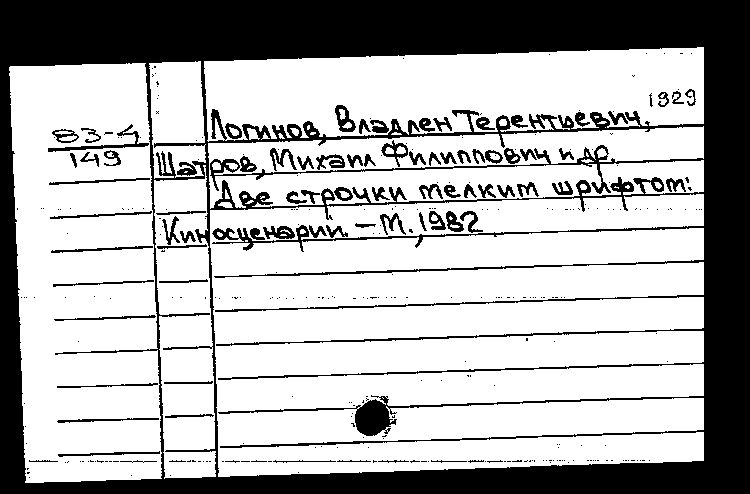 1929
83-4
149
Логинов, Владлен Терентьевич,
Шатров, Михаил Филиппович и др.
Две строчки мелким шрифтом:
Киносценарий. – М., 1982